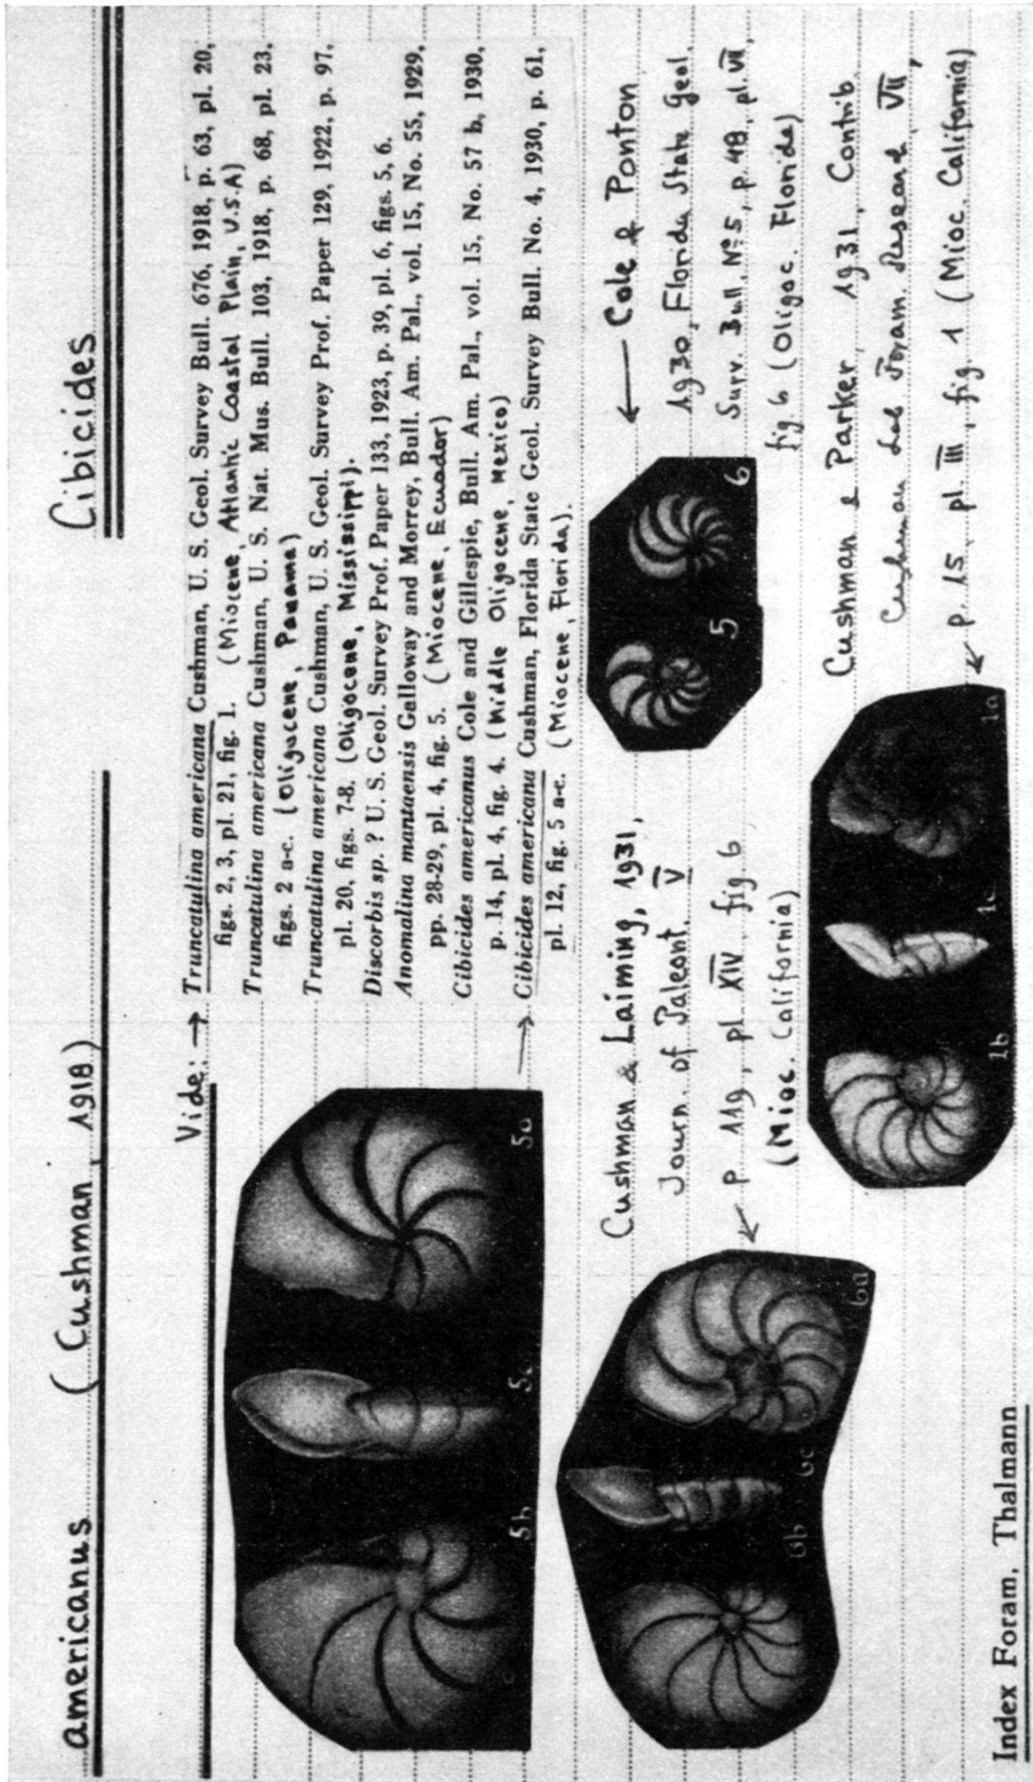 americanus (Cushman, 1918) Cibicides
Vide: → Truncatulina americana Cushman, U. S. Geol. Survey Bull. 676, 1918, p. 63, pl. 20,
figs. 2, 3, pl. 21, fig. 1. (Miocene, Atlantic Coastal Plain, U.S.A)
Truncatulina americana Cushman, U. S. Nat. Mus. Bull. 103, 1918, p. 68, pl. 23,
figs. 2 a-c. (Oligocene, Panama)
Truncatulina americana Cushman, U. S. Geol. Survey Prof. Paper 129, 1922, p. 97,
pl. 20, figs. 7-8. (Oligocene, Mississippi).
Discorbis sp. ? U. S. Geol. Survey Prof. Paper 133, 1923, p. 39, pl. 6, figs. 5, 6.
Anomalina mantaensis Galloway and Morrey, Bull. Am. Pal., vol. 15, No. 55, 1929,
pp. 28-29, pl. 4, fig. 5. (Miocene, Ecuador)
Cibicides americanus Cole and Gillespie, Bull. Am. Pal., vol. 15, No. 57 b, 1930,
p. 14, pl. 4, fig. 4. (Middle Oligocene, Mexico)
→ Cibicides americana Cushman, Florida State Geol. Survey Bull. No. 4, 1930, p. 61,
pl. 12, fig. 5 a-c. (Miocene, Florida).
5b 5c 5a
Cushman & Laiming, 1931,
Journ. of Paleont. V
← p 119, pl XIV fig 6
(Mioc. California)
6b 6c 6a
5 6
← Cole & Ponton
1930, Florida State Geol.
Surv. Bull. Nº 5, p. 48, pl. VII,
fig. 6 (Oligoc. Florida)
Cushman & Parker, 1931, Contrib
Cushman Lab Foram. Research VII,
← p. 15 pl. III, fig 1 (Mioc. California)
1b 1c 1a
Index Foram, Thalmann